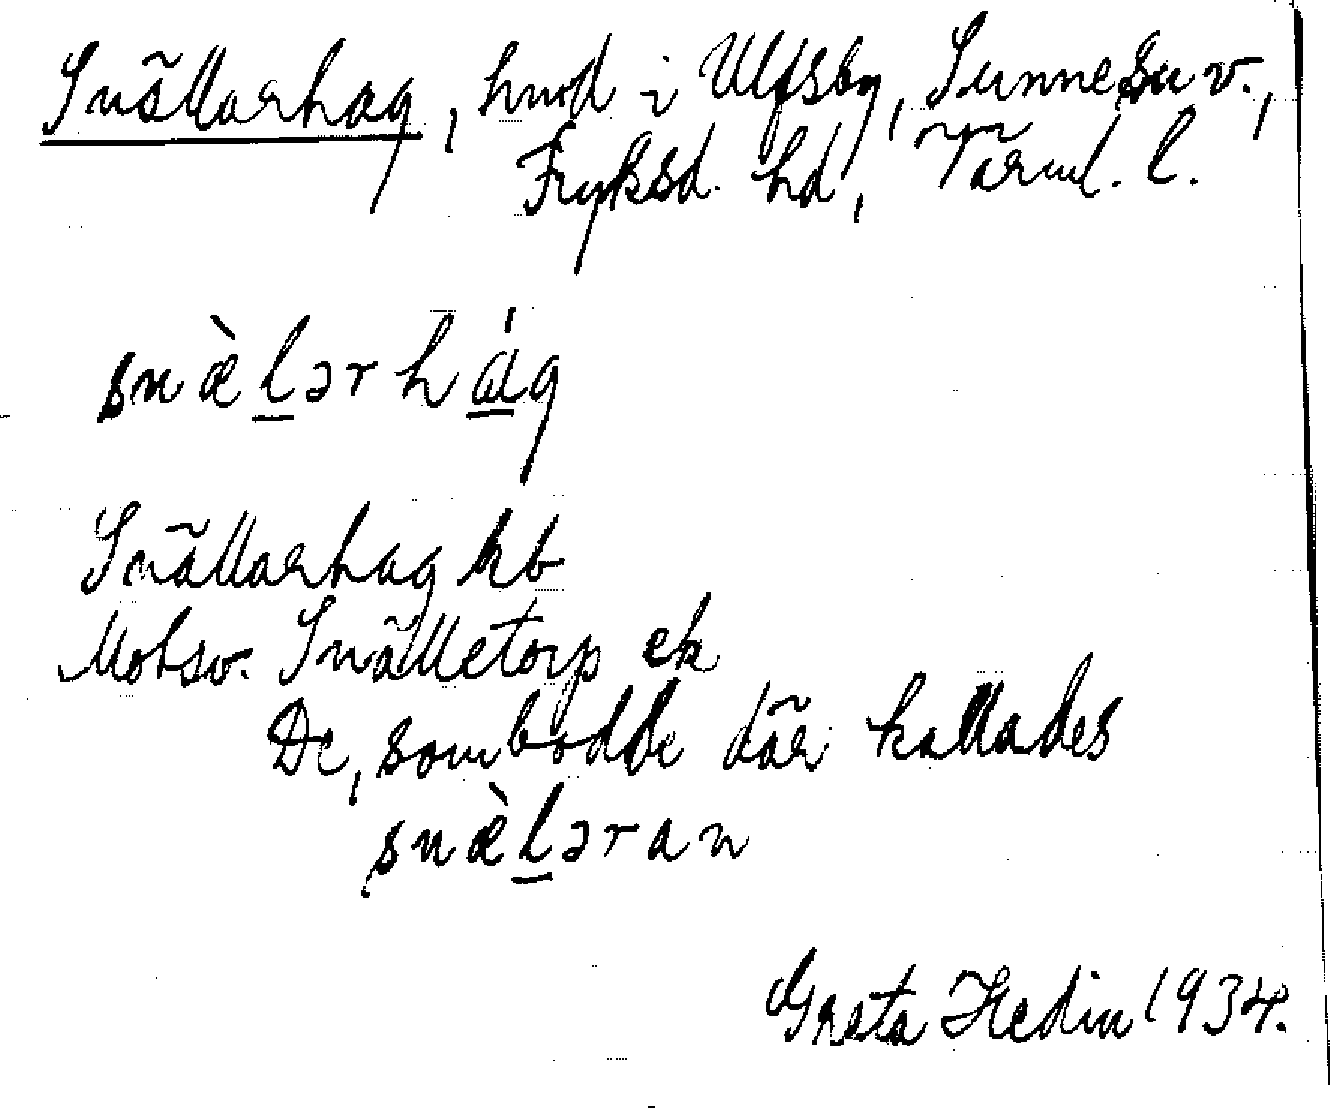 Snällarhag, hmd i Ulfsby, Sunne su v.,
Fryksd. hd, Värml. l.
snæ̀l̲ərhá̲g
Snällarhag kb
Motsv. Snälletorp ek
De, som bodde där kallades
snæ̀l̲əran
Greta Hedin 1934.